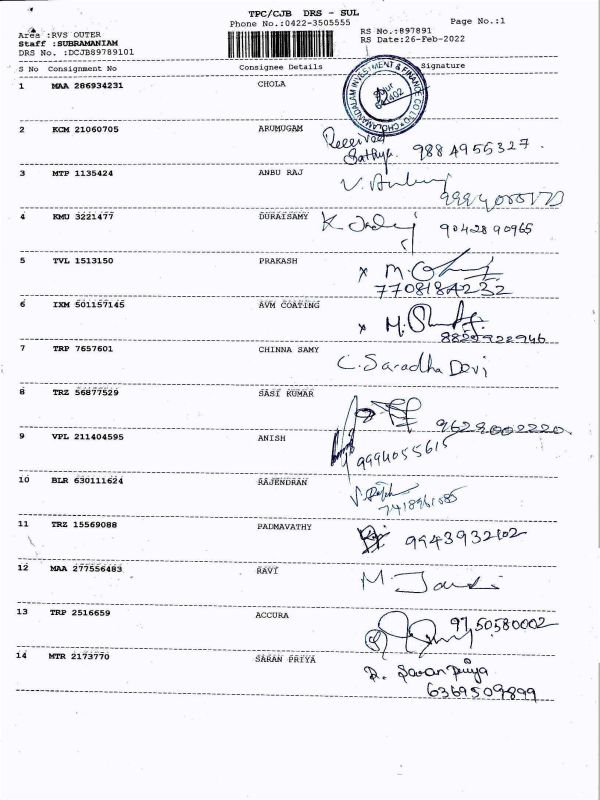 TPC/CJB DRS - SUL
Phone No.:0422-3505555 Page No.:1
Area :RVS OUTER RS No.:897891
Staff :SUBRAMANIAM RS Date:26-Feb-2022
DRS No. :DCJB89789101
S No Consignment No Consignee Details Signature
1 MAA 286934231 CHOLA
CHOLAMANDALAM INVESTMENT & FINANCE CO LTD
2 KCM 21060705 ARUMUGAM
Received
Sathya. 9884955327.
3 MTP 1135424 ANBU RAJ
4 KMU 3221477 DURAISAMY
9042890965
5 TVL 1513150 PRAKASH
7708184232
6 IXM 501157145 AVM COATING
8825922946
7 TRP 7657601 CHINNA SAMY
C. Saradha Devi
8 TRZ 56877529 SASI KUMAR
9629002220.
9 VPL 211404595 ANISH
9994055615
10 BLR 630111624 RAJENDRAN
11 TRZ 15569088 PADMAVATHY
9943932102
12 MAA 277556483 RAVI
13 TRP 2516659 ACCURA
9750580002
14 MTR 2173770 SARAN PRIYA
R. Saran priya
6369509899